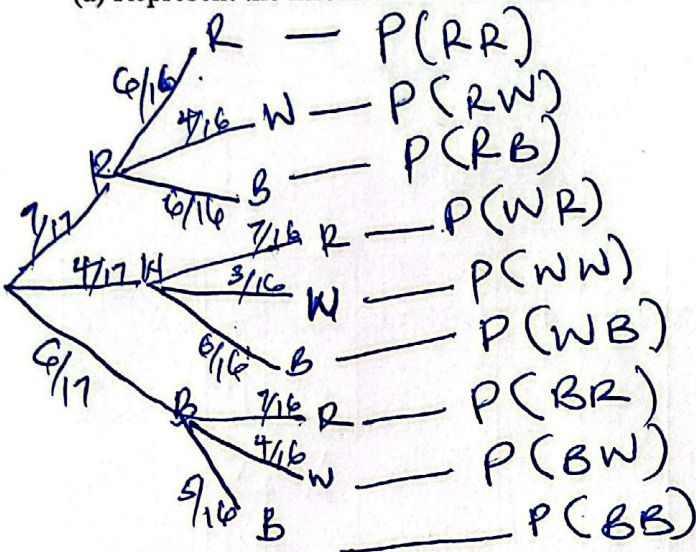 R — P(RR)
6/16
4/16 W — P(RW)
R
6/16 B — P(RB)
7/17
7/16 R — P(WR)
4/17 W 3/16 W — P(WW)
6/16 B — P(WB)
6/17
B 7/16 R — P(BR)
4/16 W — P(BW)
5/16 B — P(BB)